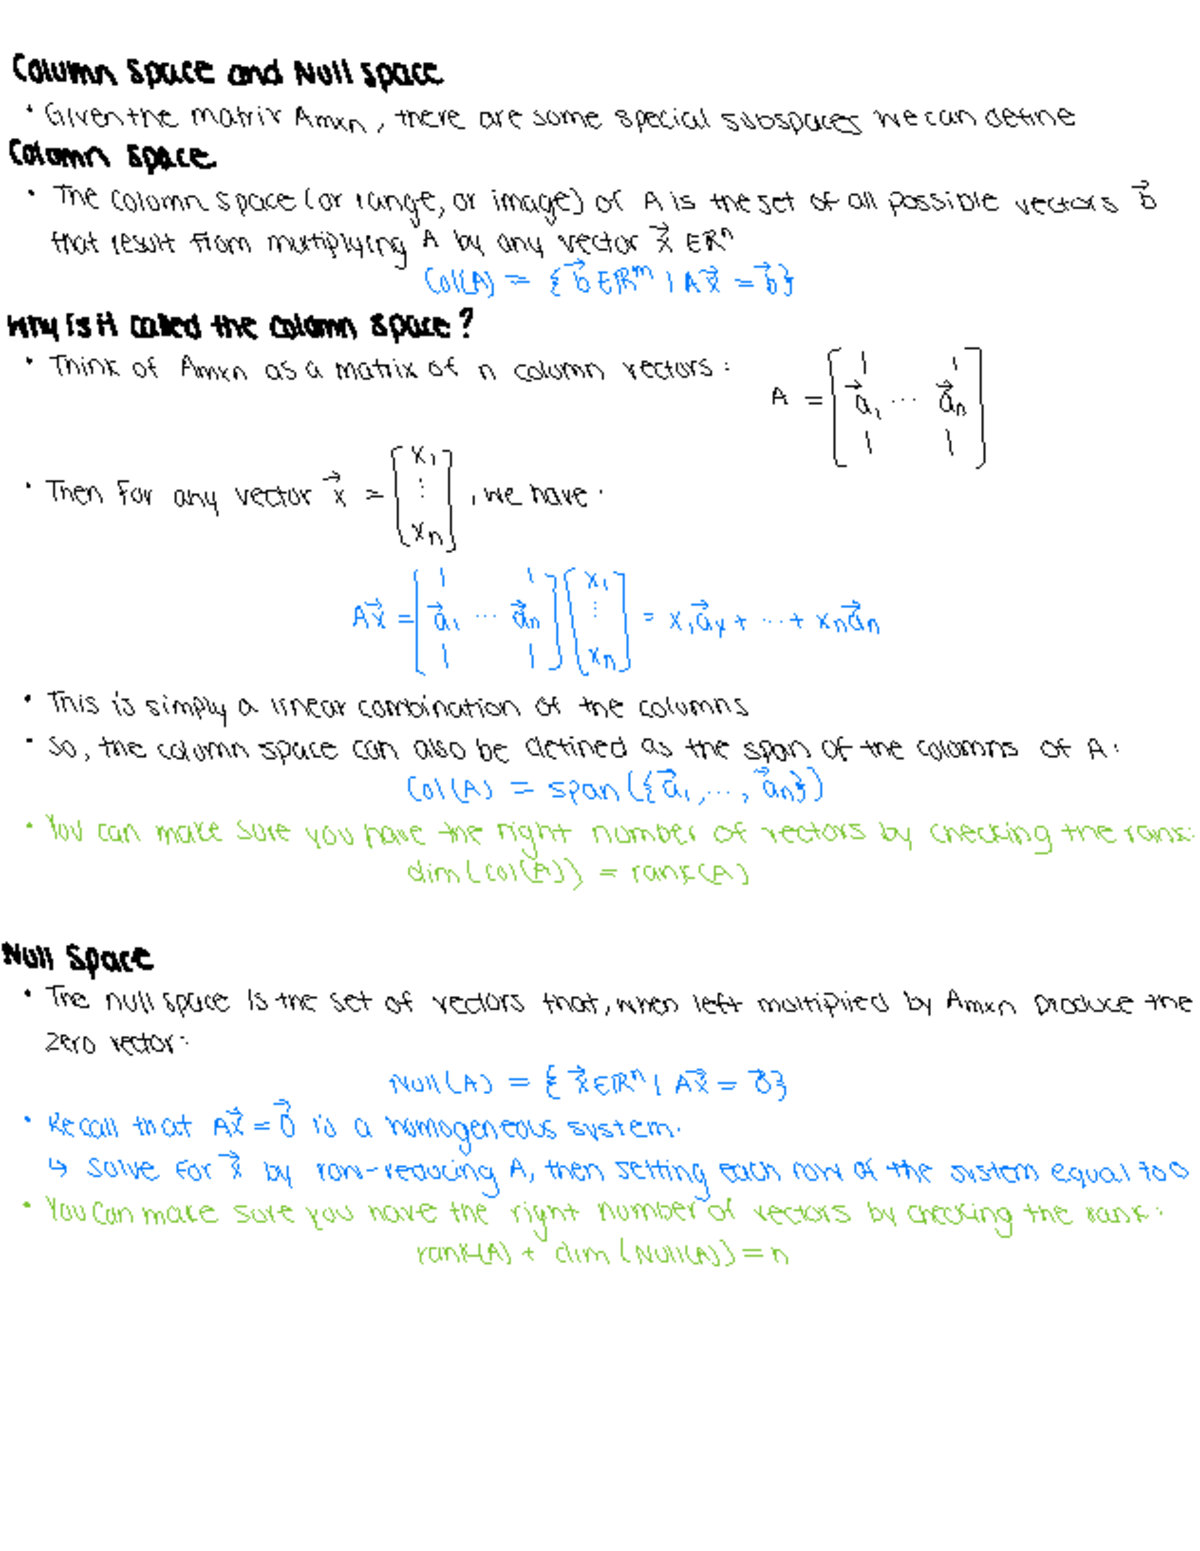 Column Space and Null Space
• Given the matrix Amxn, there are some special subspaces we can define
Column Space
• The column space (or range, or image) of A is the set of all possible vectors b⃗
that result from multiplying A by any vector x⃗ ∈ ℝⁿ
Col(A) = {b⃗ ∈ ℝᵐ | Ax⃗ = b⃗}
Why is it called the column space?
• Think of Amxn as a matrix of n column vectors: A = [a⃗₁ ⋯ a⃗ₙ]
• Then for any vector x⃗ = [x₁ ⋮ xₙ], we have:
Ax⃗ = [a⃗₁ ⋯ a⃗ₙ][x₁ ⋮ xₙ] = x₁a⃗ₓ + ⋯ + xₙa⃗ₙ
• This is simply a linear combination of the columns
• So, the column space can also be defined as the span of the columns of A:
Col(A) = span({a⃗₁, ⋯, a⃗ₙ})
• You can make sure you have the right number of vectors by checking the rank:
dim(Col(A)) = rank(A)
Null Space
• The null space is the set of vectors that, when left multiplied by Amxn produce the
zero vector:
Null(A) = {x⃗ ∈ ℝⁿ | Ax⃗ = 0⃗}
• Recall that Ax⃗ = 0⃗ is a homogeneous system.
↳ Solve for x⃗ by row-reducing A, then setting each row of the system equal to 0
• You can make sure you have the right number of vectors by checking the rank:
rank(A) + dim(Null(A)) = n